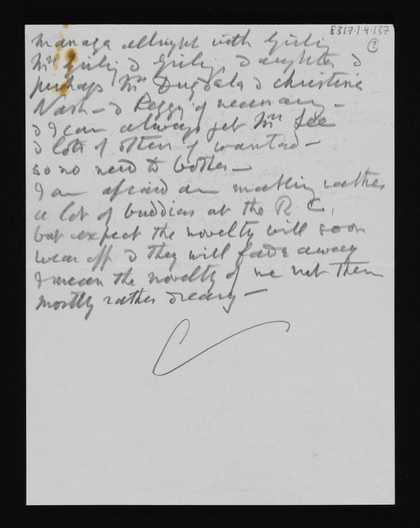 8317.1.4.137
(2
manage allright with Girlie
Mrs Girlie & Girlie's daughter &
perhaps Mrs Dugdale & Christine
Nash - & Peggy if necessary -
& I can always get Mrs Lee
& lots of others if wanted -
so no need to bother -
I am afraid am making rather
a lot of buddies at the R C,
but expect the novelty will soon
wear off & they will fade away
I mean the novelty of me not them
mostly rather dreary -
C